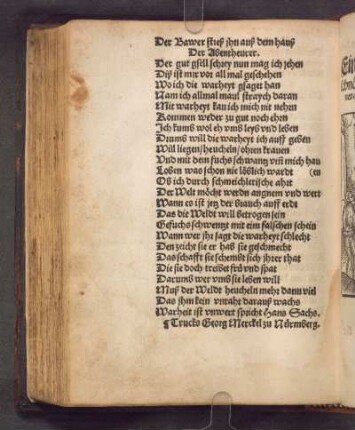 Der Bawer stieß jhn auß dem hauß
Der Abentheurer.
Der gut gsell schrey nun mag ich jehen
Diß ist mir vor all mal geschehen
Wo ich die warheyt gsaget han
Nam ich allmal maul straych daran
Mit warheyt kan ich mich nit nehen
Kommen weder zu gut noch ehn
Ich kumb wol eh vmb leyb vnd leben
Drumb will die warheyt ich auff geben
Will liegen/heucheln/ohren krauen
Vnd mit dem fuchsschwantz vm mich hau
Loben was schon nie löblich wardt (en
Ob ich durch schmeichlerische ahrt
Der Welt möcht werdn angnem vnd wert
Wann es ist jetz der brauch auff erdt
Das die Weldt will betrogen sein
Gefuchsschwentzt mit eim falschen schein
Wann wer jhr sagt die warheyt schlecht
Den zeicht sie er hab sie gschmecht
Das schafft sie schembt sich jhrer that
Die sie doch treibet frü vnd spat
Darumb wer vmb sie leben will
Muß der Weldt heucheln mehr dann vil
Das jhm kein vnraht darauß wachs
Warheit ist vnwert spricht Hans Sachs.
¶ Truckts Georg Merckel zu Nürmberg.